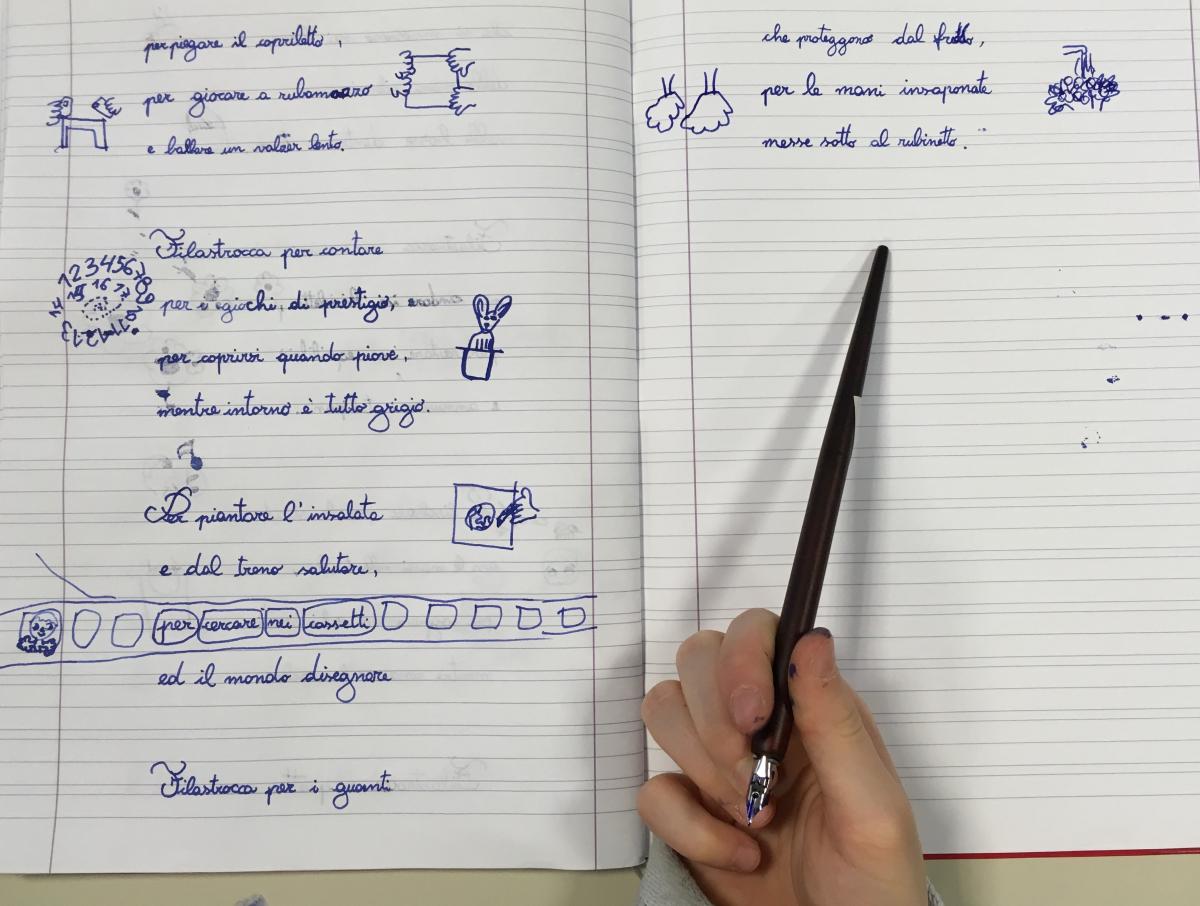 per piegare il copriletto,
per giocare a rubamazzo
e ballare un valzer lento.
Filastrocca per contare
per i giochi di prestigio,
per coprirsi quando piove,
mentre intorno è tutto grigio.
Per piantare l'insalata
e dal treno salutare,
per cercare nei cassetti
ed il mondo disegnare
Filastrocca per i guanti
che proteggono dal freddo,
per le mani insaponate
messe sotto al rubinetto.